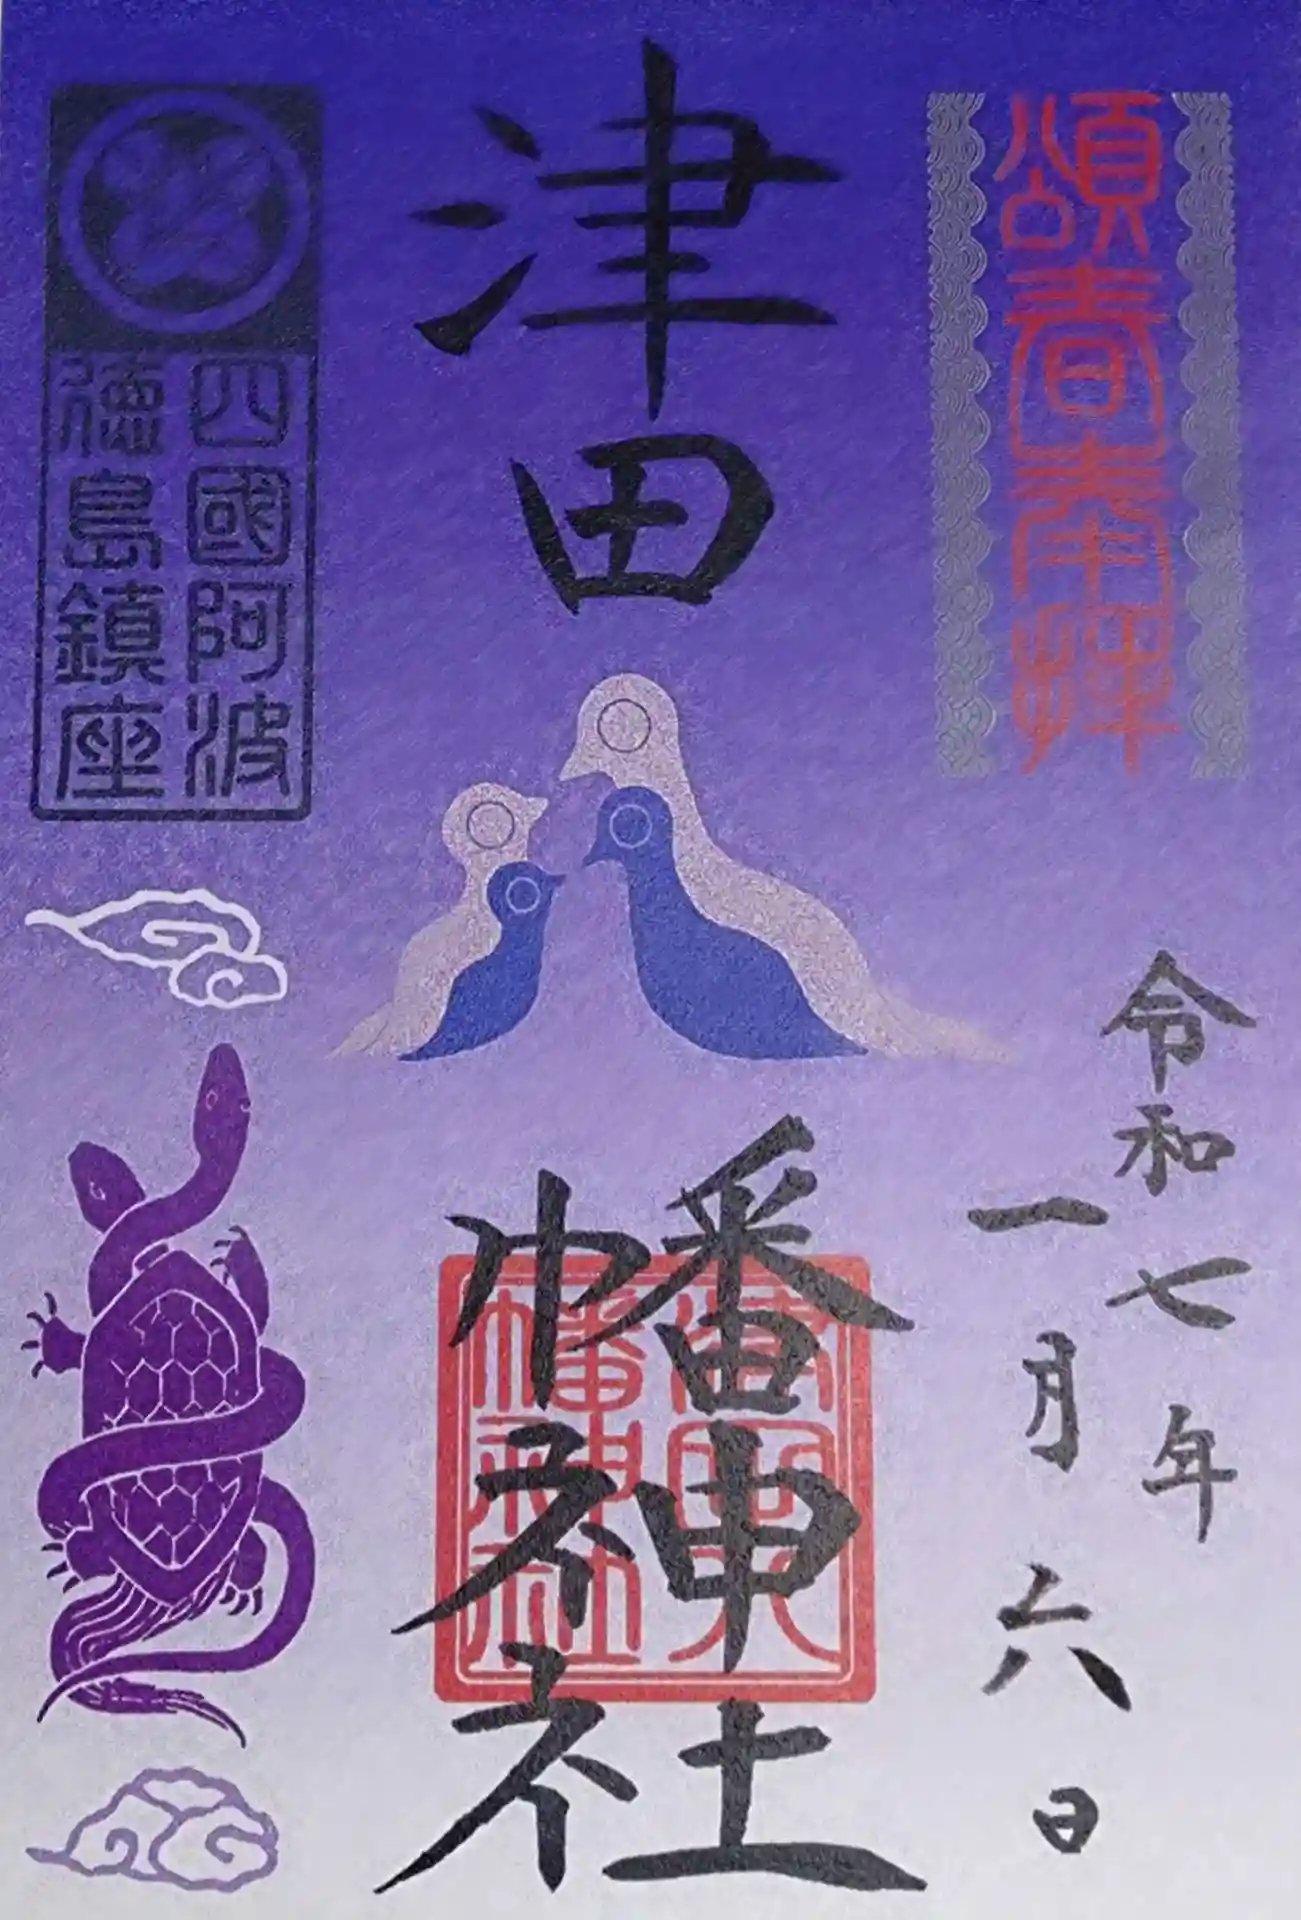 頌春奉拝
令和七年
一月六日
津田八幡神社
津田八
幡神社
四國阿波
徳島鎮座